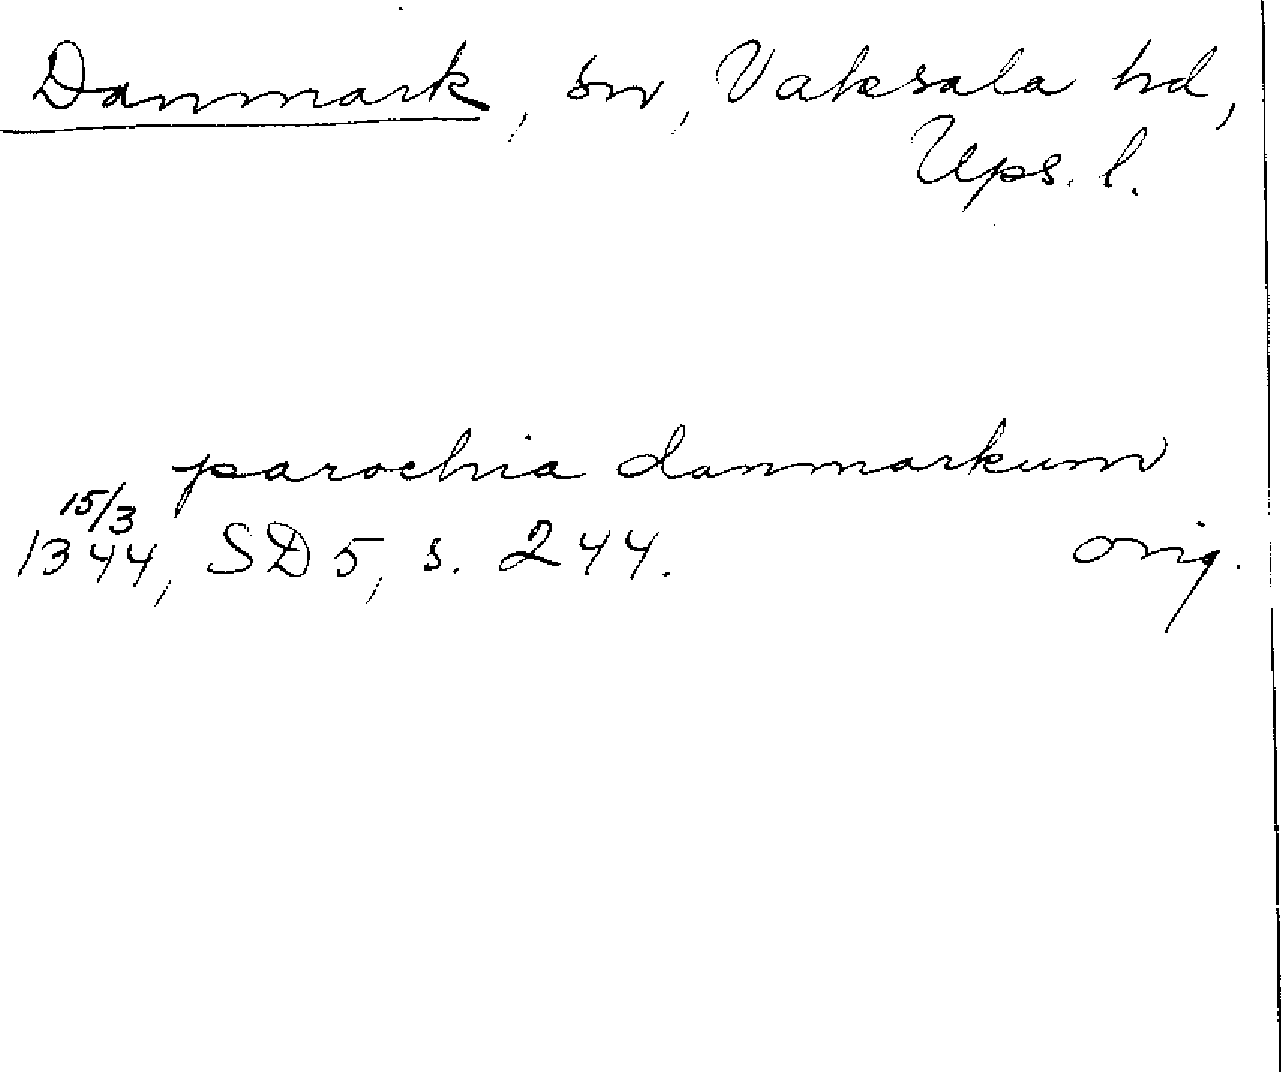 Danmark, sn, Vaksala hd,
Ups. l.
parochia danmarkum
15/3
1344, SD 5, s. 244. orig.